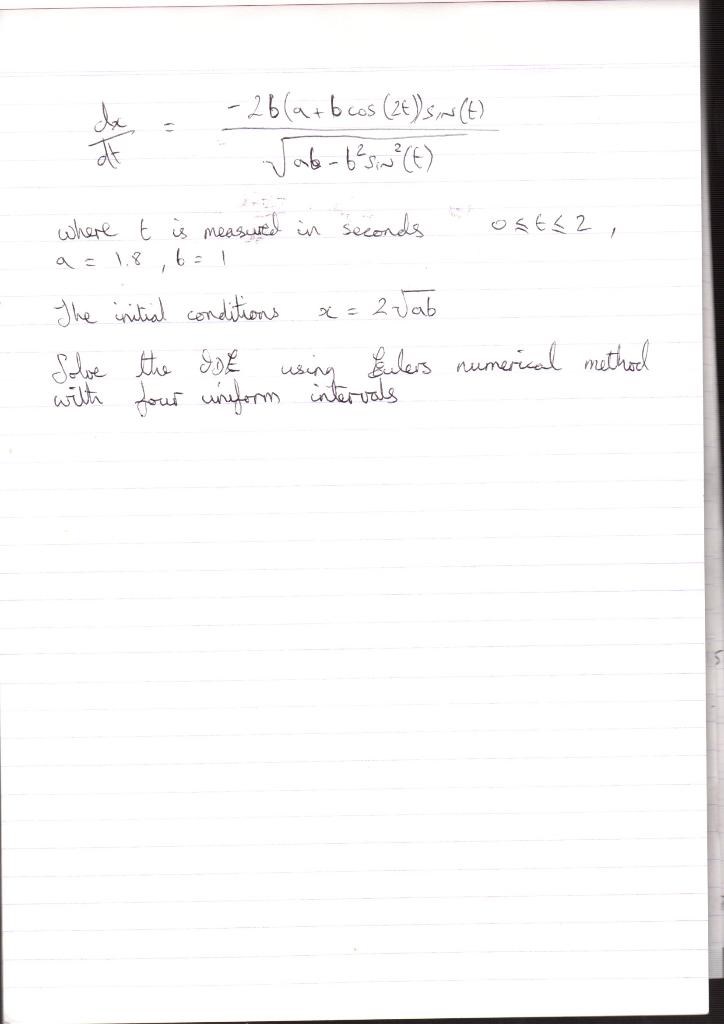 dx/dt = -2b(a+b cos(2t))sin(t) / √ab-b²sin²(t)
where t is measured in seconds 0≤t≤2,
a = 1.8, b = 1
The initial conditions x = 2√ab
Solve the ODE using Eulers numerical method
with four uniform intervals
5